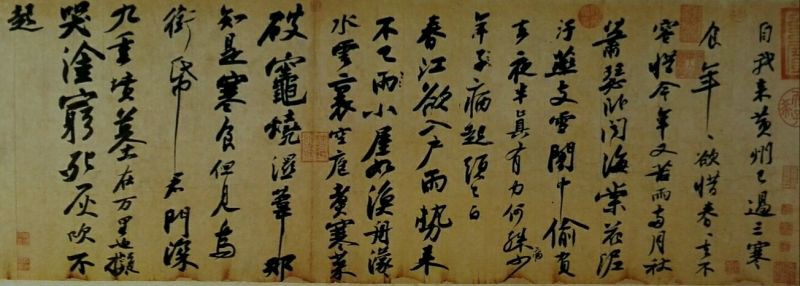 自我來黃州已過三寒
食年〻欲惜春〻去不
容惜今年又苦雨兩月秋
蕭瑟卧聞海棠花泥
汙燕支雪闇中偷負
去夜半真有力何殊少病
年子病起頭已白
春江欲入戶雨勢來
不已雨小屋如漁舟濛〻
水雲裏空庖煮寒菜
破竈燒濕葦那
知是寒食但見烏
銜帋君門深
九重墳墓在万里也擬
哭塗窮死灰吹不
起